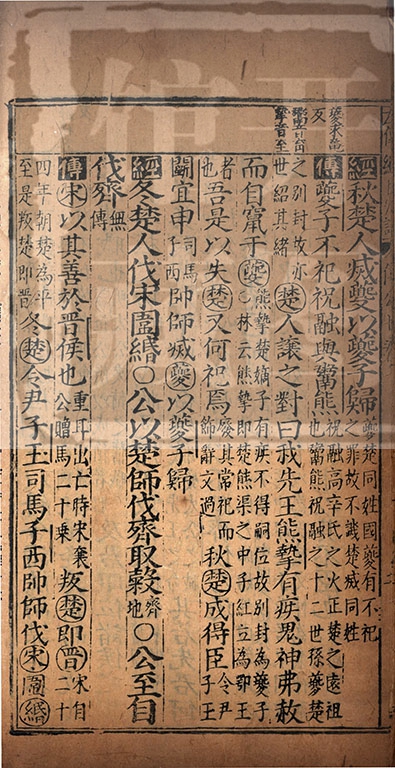 夔求龜
反
摯音至
經秋楚人滅夔以夔子歸夔楚同姓國夔有不祀之罪故不譏楚滅同姓
傳夔子不祀祝融與鬻熊祝融高辛氏之火正楚之遠祖也鬻熊祝融之十二世孫夔楚
之別封故亦世紹其緒楚人讓之對曰我先王熊摯有疾鬼神弗赦
而自竄于夔熊摯楚嫡子有疾不得嗣位故別封為夔子○林云熊摯即楚熊渠之中子紅立為鄂王
者也吾是以失楚又何祀焉廢其常祀而飾辭文過秋楚成得臣令尹子玉
鬬宜申司馬子西帥師滅夔以夔子歸
經冬楚人伐宋圍緡○公以楚師伐齊取穀齊地○公至自
伐齊無傳
傳宋以其善於晉侯也重耳出亡時宋襄公贈馬二十乘叛楚即晉宋自二十
四年朝楚為平至是叛楚即晉冬楚令尹子玉司馬子西帥師伐宋圍緡